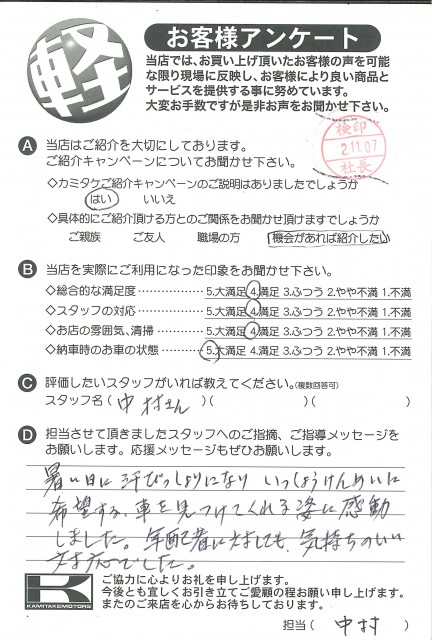 軽
お客様アンケート
当店では、お買い上げ頂いたお客様の声を可能
な限り現場に反映し、お客様により良い商品と
サービスを提供する事に努めています。
大変お手数ですが是非お声をお聞かせ下さい。
検印
2.11.07
社長
A 当店はご紹介を大切にしております。
ご紹介キャンペーンについてお聞かせ下さい。
◇カミタケご紹介キャンペーンのご説明はありましたでしょうか
はい いいえ
◇具体的にご紹介頂ける方とのご関係をお聞かせ頂けますでしょうか
ご親族 ご友人 職場の方 機会があれば紹介したい
B 当店を実際にご利用になった印象をお聞かせ下さい。
◇総合的な満足度 5.大満足 4.満足 3.ふつう 2.やや不満 1.不満
◇スタッフの対応 5.大満足 4.満足 3.ふつう 2.やや不満 1.不満
◇お店の雰囲気、清掃 5.大満足 4.満足 3.ふつう 2.やや不満 1.不満
◇納車時のお車の状態 5.大満足 4.満足 3.ふつう 2.やや不満 1.不満
C 評価したいスタッフがいれば教えてください。(複数回答可)
スタッフ名(中村さん)( )( )
D 担当させて頂きましたスタッフへのご指摘、ご指導メッセージを
お願いします。応援メッセージもぜひお願いします。
暑い日に汗びっしょりになり いっしょうけんめいに
希望する、車を見つけてくれる姿に感動
しました。年配者に対しても、気持ちのいい
対応でした。
K
KAMITAKEMOTORS
ご協力に心よりお礼を申し上げます。
今後とも宜しくお引き立てご愛顧の程お願い申し上げます。
またのご来店を心からお待ちしております。
担当(中村)